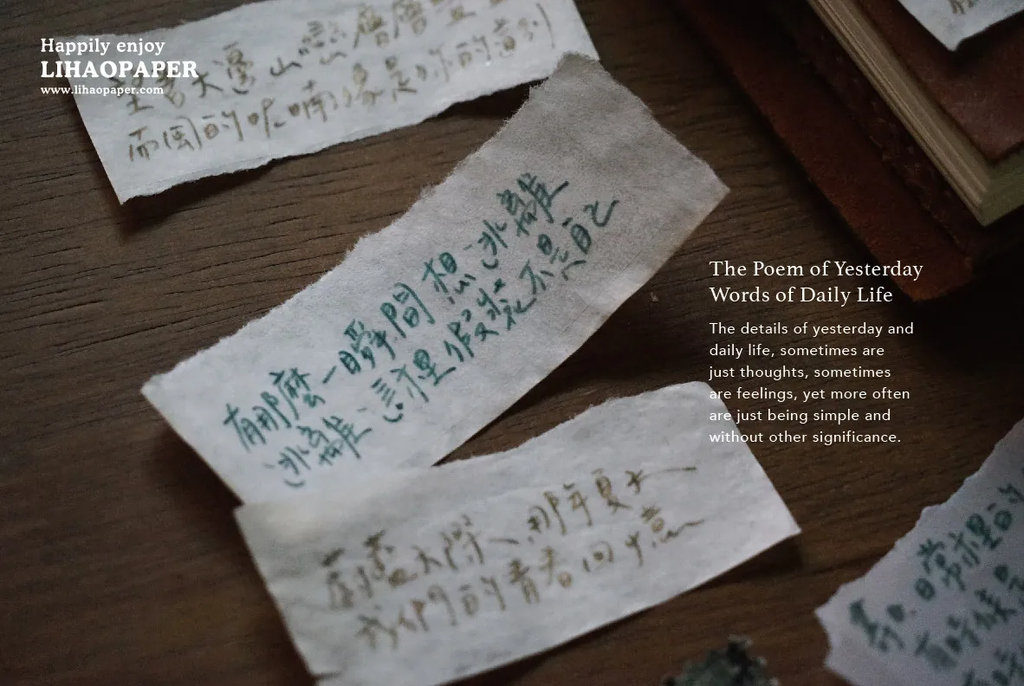 Happily enjoy
LIHAOPAPER
www.lihaopaper.com
望著天邊山巒層層疊
而風的呢喃像是你的道別
有那麼一瞬間想逃離
逃離這裡假裝不是自己
The Poem of Yesterday
Words of Daily Life
The details of yesterday and
daily life, sometimes are
just thoughts, sometimes
are feelings, yet more often
are just being simple and
without other significance.
天際、那年夏天
我們的青春回憶
日常裡的
有時候是